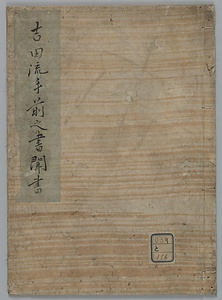 吉田流手前之書聞書
と
116